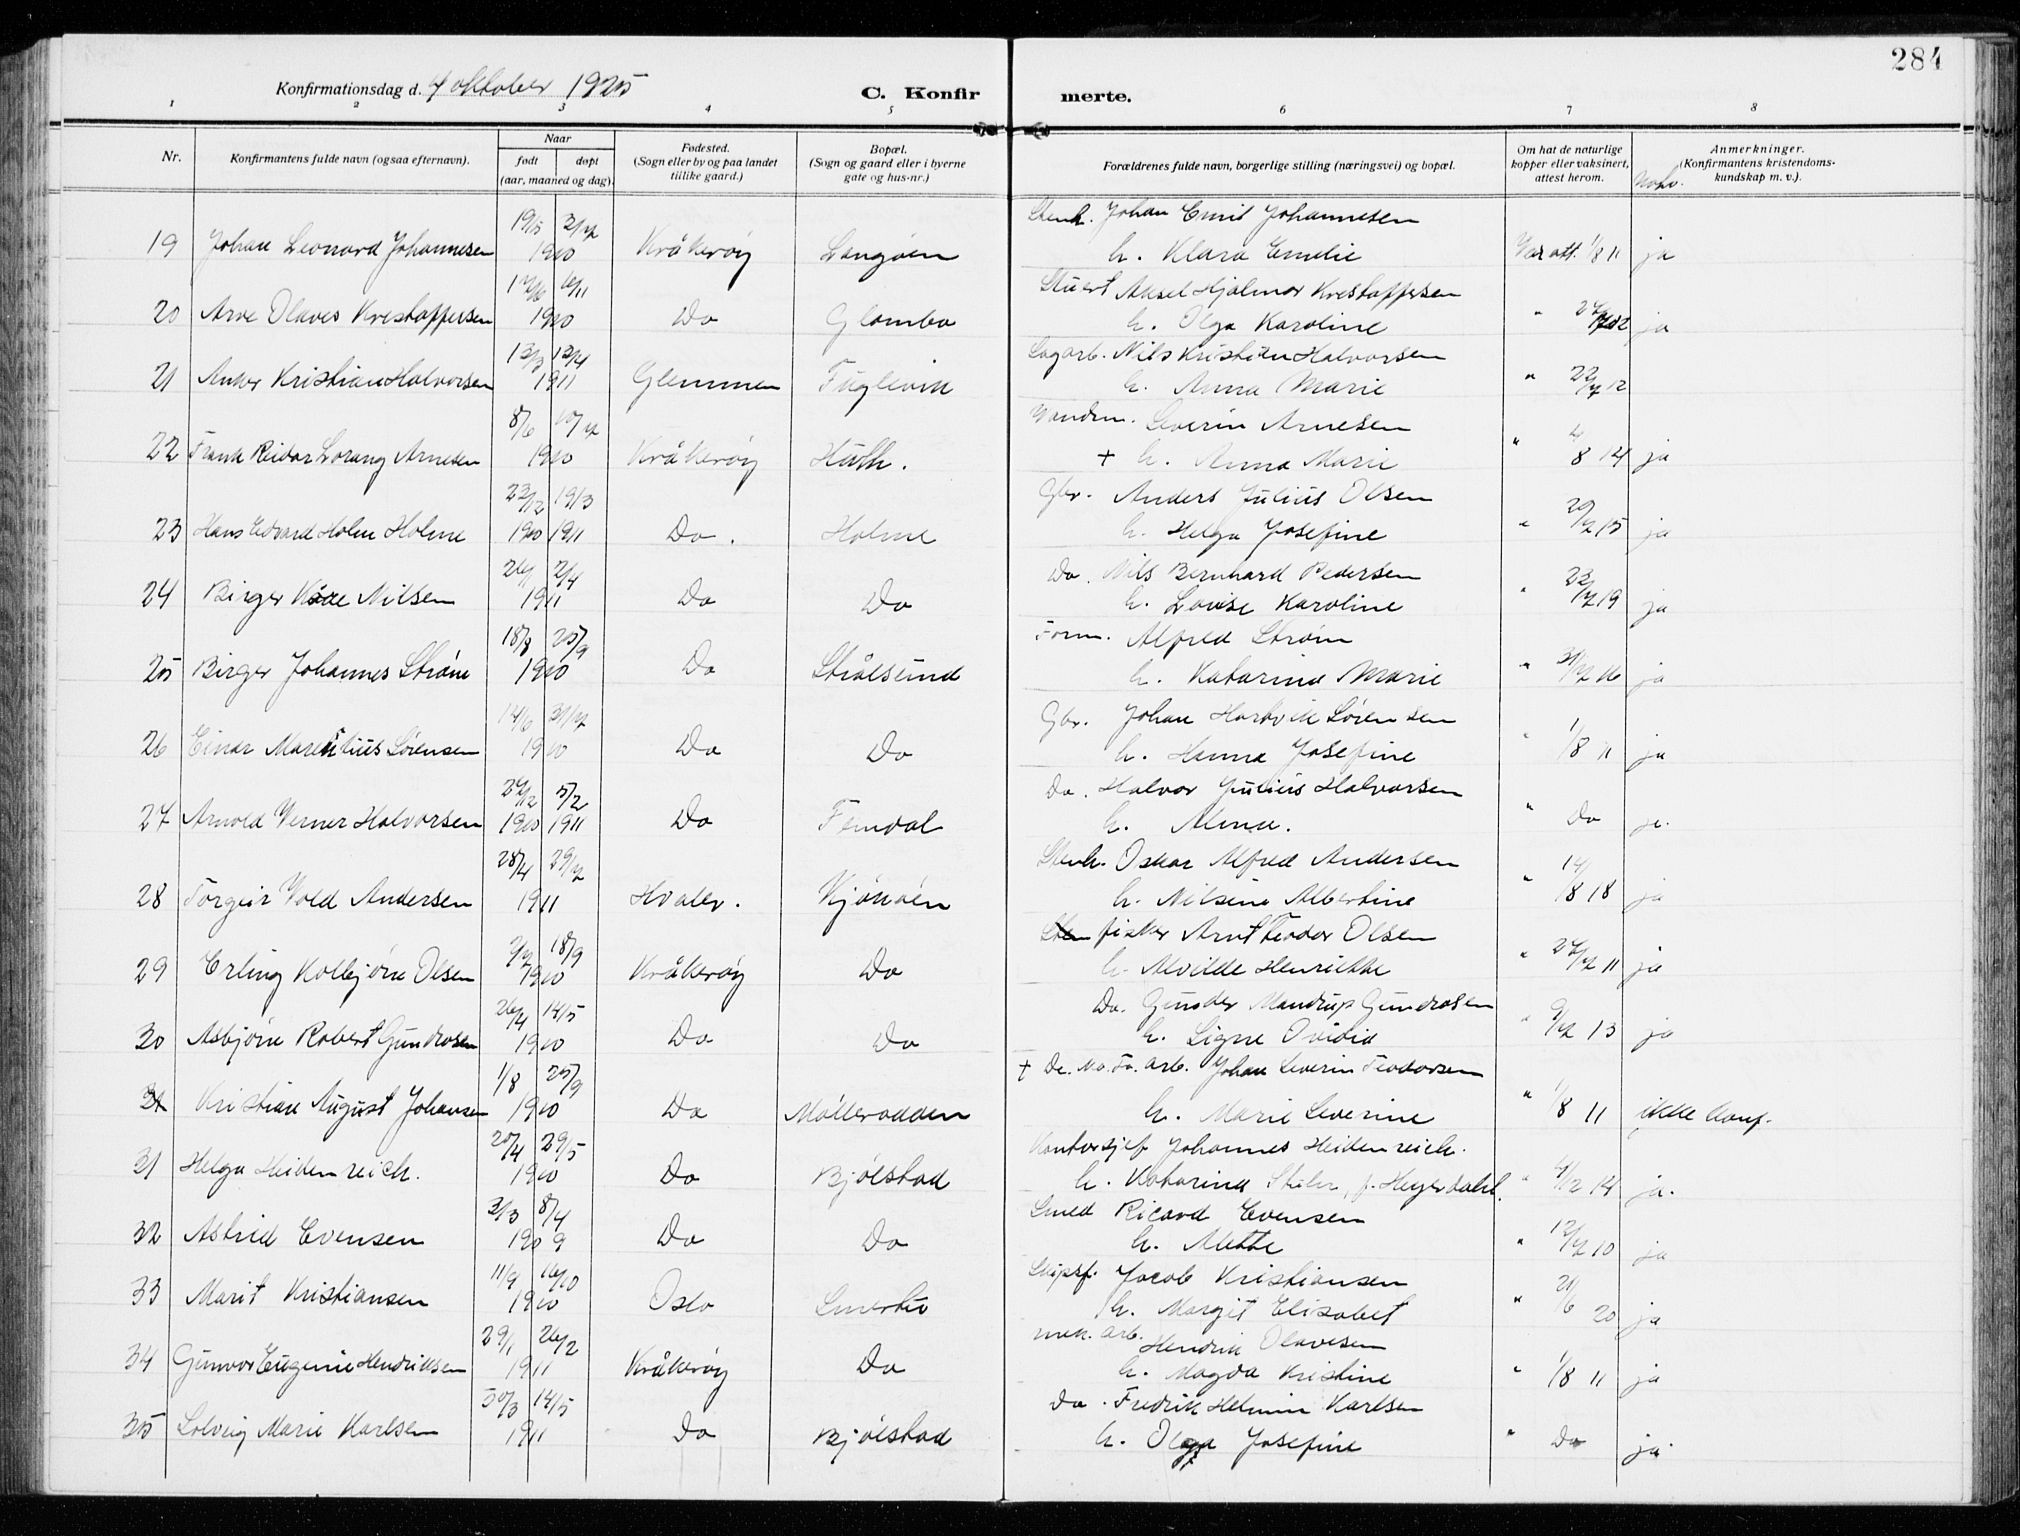 284
Konfirmationsdag d. 4 oktober 1925
C. Konfir merte.
1 2 3 4 5 6 7 8
Nr.
Konfirmantens fulde navn (ogsaa efternavn).
Naar
født døpt
(aar, maaned og dag).
Fødested.
(Sogn eller by og paa landet
tillike gaard.)
Bopæl.
(Sogn og gaard eller i byerne
gate og hus-nr.)
Forældrenes fulde navn, borgerlige stilling (næringsvei) og bopæl.
Om hat de naturlige
kopper eller vaksinert,
attest herom.
Anmerkninger.
(Konfirmantens kristendoms-
kundskap m. v.).
Stenh. Johan Emil Johannesen
19 Johan Leonard Johannesen 1910 Kråkerøy Langøen h. Klara Emelie Vac att. 1/8 11 ja
Stuert Aksel Hjalmar Kristoffersen
20 Arve Olaves Kristoffersen 1910 Do Glombo h. Olga Karoline " ja
13/3 13/4 Sagarb. Nils Kristian Halvorsen
21 Anker Kristian Halvorsen 1911 Glemmen Fuglevik h. Anna Marie " 22/7 12
8/6 10/7 Vandm. Severin Arnesen
22 Frank Reidar Lorang Arnesen 1910 Kråkerøy Huth. + h. Anna Marie " 8 14 ja
23/12 19/3 Gbr. Anders Julius Olsen
23 Hans Edvard Holm Holme 1910 1911 Do. Holme h. Helga Josefine " 15 ja
26/1 2/4 Do. Nils Bernhard Pedersen
24 Birger Kåre Nilsen 1911 Do Do h. Lovise Karoline " 19 ja
18/8 25/9 Form. Alfred Strøm
25 Birger Johannes Strøm 1910 Do Strålsund h. Katarina Marie " 16 ja
14/6 31/7 Gbr. Johan Hartvik Sørensen
26 Einar Marentius Sørensen 1910 Do Do h. Hanna Josefine " 1/8 11 ja
27/12 5/2 Do. Halvor Julius Halvorsen
27 Arnold Verner Halvorsen 1910 1911 Do Femdal h. Alma. " Do ja.
28/4 29/7 Stenh. Oskar Alfred Andersen
28 Torgeir Vold Andersen 1911 Hvaler. Kjøkøen h. Nilsine Albertine " 14/8 18 ja
18/9 fisker Arnt Teodor Olsen
29 Erling Kolbjørn Olsen 1910 Kråkerøy Do h. Alvilde Henriette " 27/7 11 ja
26/4 14/5 Do. Gunder Mandrup Gundrosen
30 Asbjørn Robert Gundrosen 1910 Do Do h. Signe Ovidia " 9/7 13 ja
1/8 25/9 + De. No. Fa. arb. Johan Severin Teodorsen
31 Kristian August Johansen 1910 Do Møllerodden h. Marie Severine " 1/8 11 ikke konf.
20/4 29/5 Kontorsjef Johannes Heidenreich.
31 Helga Heidenreich. 1910 Do Bjølstad h. Katarina f. Heyerdahl. " 14 ja.
3/3 8/4 Smed Ricard Evensen
32 Astrid Evensen 1909 Do Do h. Mette " 12/7 10 ja
11/9 16/10 Skipsf. Jacob Kristiansen
33 Marit Kristiansen 1910 Oslo Smertu h. Margit Elisabet " 21/6 20 ja
29/1 26/2 mek. arb. Hendrik Olavesen
34 Gunvor Eugenie Hendriksen 1911 Kråkerøy Do h. Magda Kristine " 1/8 11 ja
30/3 14/5 Do. Fredrik Helmin Karlsen
35 Solveig Marie Karlsen 1911 Do Bjølstad h. Olga Josefine " Do ja.